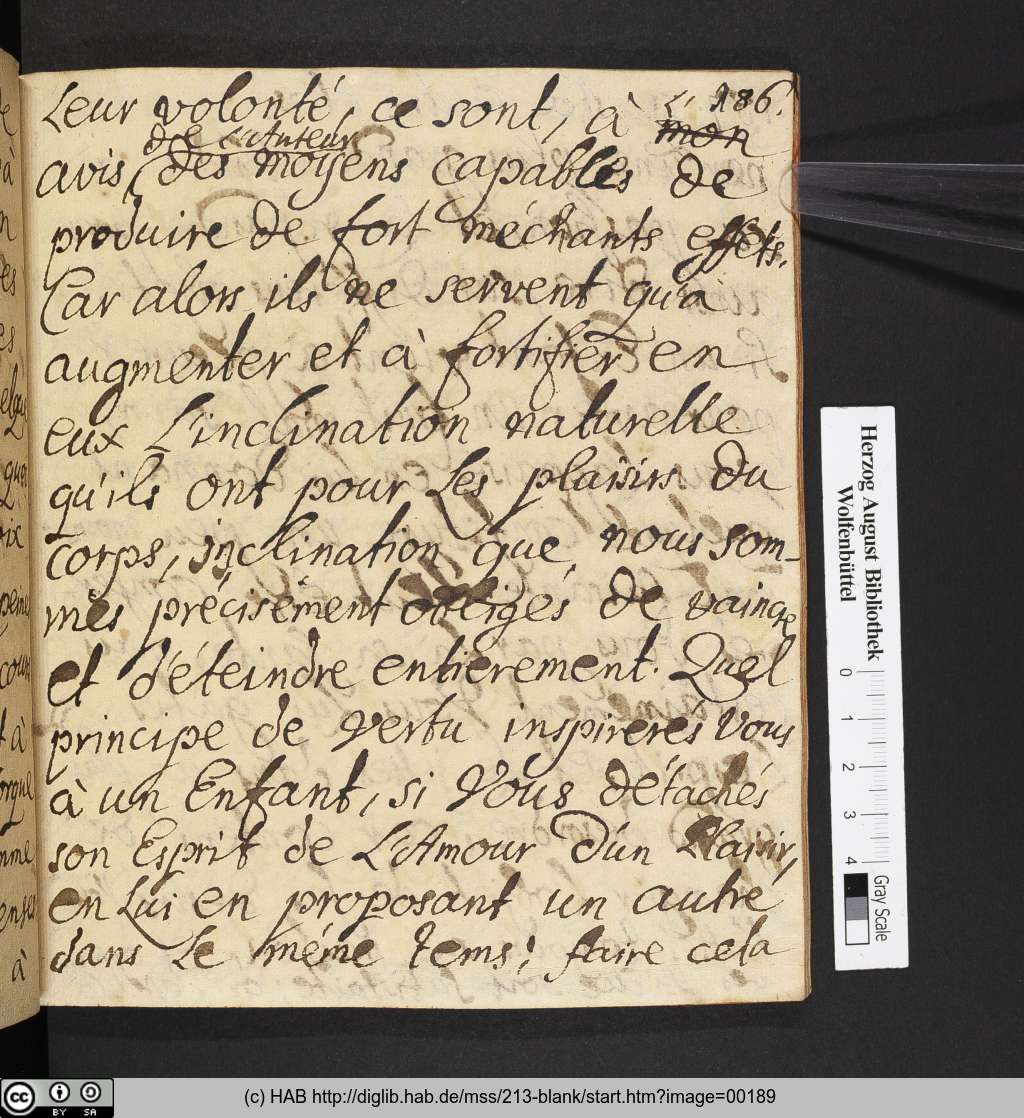 186.
Leur volonté, ce sont, à L' mon
de L'Auteur
avis, des moyens capables de
produire de fort méchants effets.
Car alors ils ne servent qu'à
augmenter et à fortifier en
eux L'inclination naturelle
qu'ils ont pour Les plaisirs du
corps, inclination que nous som-
mes précisément obligés de vaincre
et d'éteindre entierement. Quel
principe de vertu inspirerés Vous
à un Enfant, si Vous détachés
son Esprit de L'Amour d'un Plaisir,
en Lui en proposant un autre
dans Le même tems? faire cela
Herzog August Bibliothek
Wolfenbüttel
0 1 2 3 4
Gray Scale
(c) HAB http://diglib.hab.de/mss/213-blank/start.htm?image=00189
cc BY SA